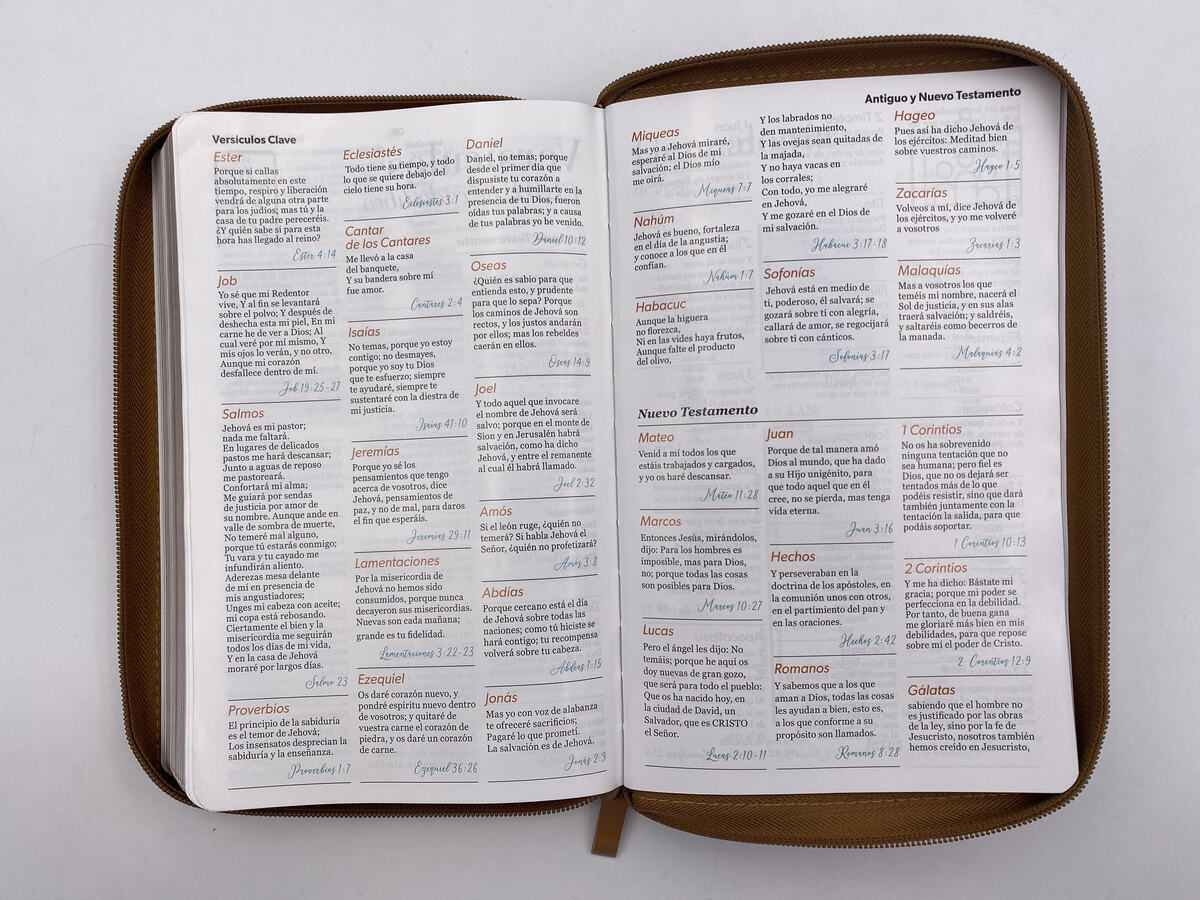 Versículos Clave
Ester
Porque si callas
absolutamente en este
tiempo, respiro y liberación
vendrá de alguna otra parte
para los judíos; mas tú y la
casa de tu padre pereceréis.
¿Y quién sabe si para esta
hora has llegado al reino?
Ester 4:14
Job
Yo sé que mi Redentor
vive, Y al fin se levantará
sobre el polvo; Y después de
deshecha esta mi piel, En mi
carne he de ver a Dios; Al
cual veré por mí mismo, Y
mis ojos lo verán, y no otro,
Aunque mi corazón
desfallece dentro de mí.
Job 19:25-27
Salmos
Jehová es mi pastor;
nada me faltará.
En lugares de delicados
pastos me hará descansar;
Junto a aguas de reposo
me pastoreará.
Confortará mi alma;
Me guiará por sendas
de justicia por amor de
su nombre. Aunque ande en
valle de sombra de muerte,
No temeré mal alguno,
porque tú estarás conmigo;
Tu vara y tu cayado me
infundirán aliento.
Aderezas mesa delante
de mí en presencia de
mis angustiadores;
Unges mi cabeza con aceite;
mi copa está rebosando.
Ciertamente el bien y la
misericordia me seguirán
todos los días de mi vida,
Y en la casa de Jehová
moraré por largos días.
Salmo 23
Proverbios
El principio de la sabiduría
es el temor de Jehová;
Los insensatos desprecian la
sabiduría y la enseñanza.
Proverbios 1:7
Eclesiastés
Todo tiene su tiempo, y todo
lo que se quiere debajo del
cielo tiene su hora.
Eclesiastés 3:1
Cantar
de los Cantares
Me llevó a la casa
del banquete,
Y su bandera sobre mí
fue amor.
Cantares 2:4
Isaías
No temas, porque yo estoy
contigo; no desmayes,
porque yo soy tu Dios
que te esfuerzo; siempre
te ayudaré, siempre te
sustentaré con la diestra de
mi justicia.
Isaías 41:10
Jeremías
Porque yo sé los
pensamientos que tengo
acerca de vosotros, dice
Jehová, pensamientos de
paz, y no de mal, para daros
el fin que esperáis.
Jeremías 29:11
Lamentaciones
Por la misericordia de
Jehová no hemos sido
consumidos, porque nunca
decayeron sus misericordias.
Nuevas son cada mañana;
grande es tu fidelidad.
Lamentaciones 3:22-23
Ezequiel
Os daré corazón nuevo, y
pondré espíritu nuevo dentro
de vosotros; y quitaré de
vuestra carne el corazón de
piedra, y os daré un corazón
de carne.
Ezequiel 36:26
Daniel
Daniel, no temas; porque
desde el primer día que
dispusiste tu corazón a
entender y a humillarte en la
presencia de tu Dios, fueron
oídas tus palabras; y a causa
de tus palabras yo he venido.
Daniel 10:12
Oseas
¿Quién es sabio para que
entienda esto, y prudente
para que lo sepa? Porque
los caminos de Jehová son
rectos, y los justos andarán
por ellos; mas los rebeldes
caerán en ellos.
Oseas 14:9
Joel
Y todo aquel que invocare
el nombre de Jehová será
salvo; porque en el monte de
Sion y en Jerusalén habrá
salvación, como ha dicho
Jehová, y entre el remanente
al cual él habrá llamado.
Joel 2:32
Amós
Si el león ruge, ¿quién no
temerá? Si habla Jehová el
Señor, ¿quién no profetizará?
Amós 3:8
Abdías
Porque cercano está el día
de Jehová sobre todas las
naciones; como tú hiciste se
hará contigo; tu recompensa
volverá sobre tu cabeza.
Abdías 1:15
Jonás
Mas yo con voz de alabanza
te ofreceré sacrificios;
Pagaré lo que prometí.
La salvación es de Jehová.
Jonás 2:9
Antiguo y Nuevo Testamento
Miqueas
Mas yo a Jehová miraré,
esperaré al Dios de mi
salvación; el Dios mío
me oirá.
Miqueas 7:7
Nahúm
Jehová es bueno, fortaleza
en el día de la angustia;
y conoce a los que en él
confían.
Nahúm 1:7
Habacuc
Aunque la higuera
no florezca,
Ni en las vides haya frutos,
Aunque falte el producto
del olivo,
Y los labrados no
den mantenimiento,
Y las ovejas sean quitadas de
la majada,
Y no haya vacas en
los corrales;
Con todo, yo me alegraré
en Jehová,
Y me gozaré en el Dios de
mi salvación.
Habacuc 3:17-18
Sofonías
Jehová está en medio de
ti, poderoso, él salvará; se
gozará sobre ti con alegría,
callará de amor, se regocijará
sobre ti con cánticos.
Sofonías 3:17
Hageo
Pues así ha dicho Jehová de
los ejércitos: Meditad bien
sobre vuestros caminos.
Hageo 1:5
Zacarías
Volveos a mí, dice Jehová de
los ejércitos, y yo me volveré
a vosotros
Zacarías 1:3
Malaquías
Mas a vosotros los que
teméis mi nombre, nacerá el
Sol de justicia, y en sus alas
traerá salvación; y saldréis,
y saltaréis como becerros de
la manada.
Malaquías 4:2
Nuevo Testamento
Mateo
Venid a mí todos los que
estáis trabajados y cargados,
y yo os haré descansar.
Mateo 11:28
Marcos
Entonces Jesús, mirándolos,
dijo: Para los hombres es
imposible, mas para Dios,
no; porque todas las cosas
son posibles para Dios.
Marcos 10:27
Lucas
Pero el ángel les dijo: No
temáis; porque he aquí os
doy nuevas de gran gozo,
que será para todo el pueblo:
Que os ha nacido hoy, en
la ciudad de David, un
Salvador, que es CRISTO
el Señor.
Lucas 2:10-11
Juan
Porque de tal manera amó
Dios al mundo, que ha dado
a su Hijo unigénito, para
que todo aquel que en él
cree, no se pierda, mas tenga
vida eterna.
Juan 3:16
Hechos
Y perseveraban en la
doctrina de los apóstoles, en
la comunión unos con otros,
en el partimiento del pan y
en las oraciones.
Hechos 2:42
Romanos
Y sabemos que a los que
aman a Dios, todas las cosas
les ayudan a bien, esto es,
a los que conforme a su
propósito son llamados.
Romanos 8:28
1 Corintios
No os ha sobrevenido
ninguna tentación que no
sea humana; pero fiel es
Dios, que no os dejará ser
tentados más de lo que
podéis resistir, sino que dará
también juntamente con la
tentación la salida, para que
podáis soportar.
1 Corintios 10:13
2 Corintios
Y me ha dicho: Bástate mi
gracia; porque mi poder se
perfecciona en la debilidad.
Por tanto, de buena gana
me gloriaré más bien en mis
debilidades, para que repose
sobre mí el poder de Cristo.
2 Corintios 12:9
Gálatas
sabiendo que el hombre no
es justificado por las obras
de la ley, sino por la fe de
Jesucristo, nosotros también
hemos creído en Jesucristo,